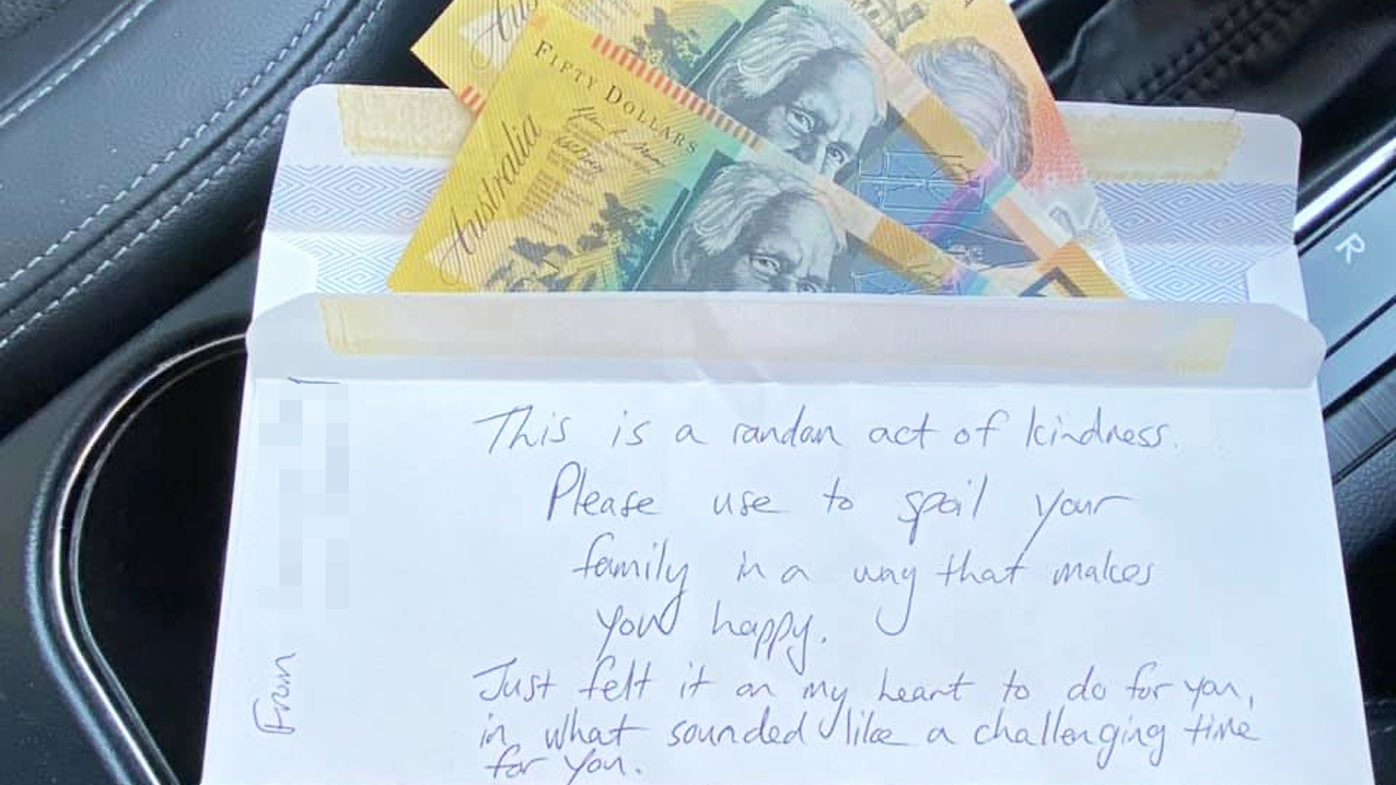 Aus
FIFTY DOLLARS
Australia
R
This is a randon act of kindness.
Please use to spoil your
family in a way that makes
you happy.
Just felt it on my heart to do for you,
in what sounded like a challenging time
for you.
From